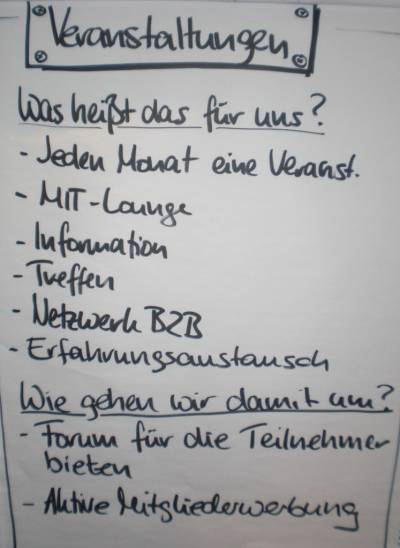 Veranstaltungen
Was heißt das für uns?
- Jeden Monat eine Veranst.
- MIT-Lounge
- Information
- Treffen
- Netzwerk B2B
- Erfahrungsaustausch
Wie gehen wir damit um?
- Forum für die Teilnehmer
bieten
- Aktive Mitgliederwerbung